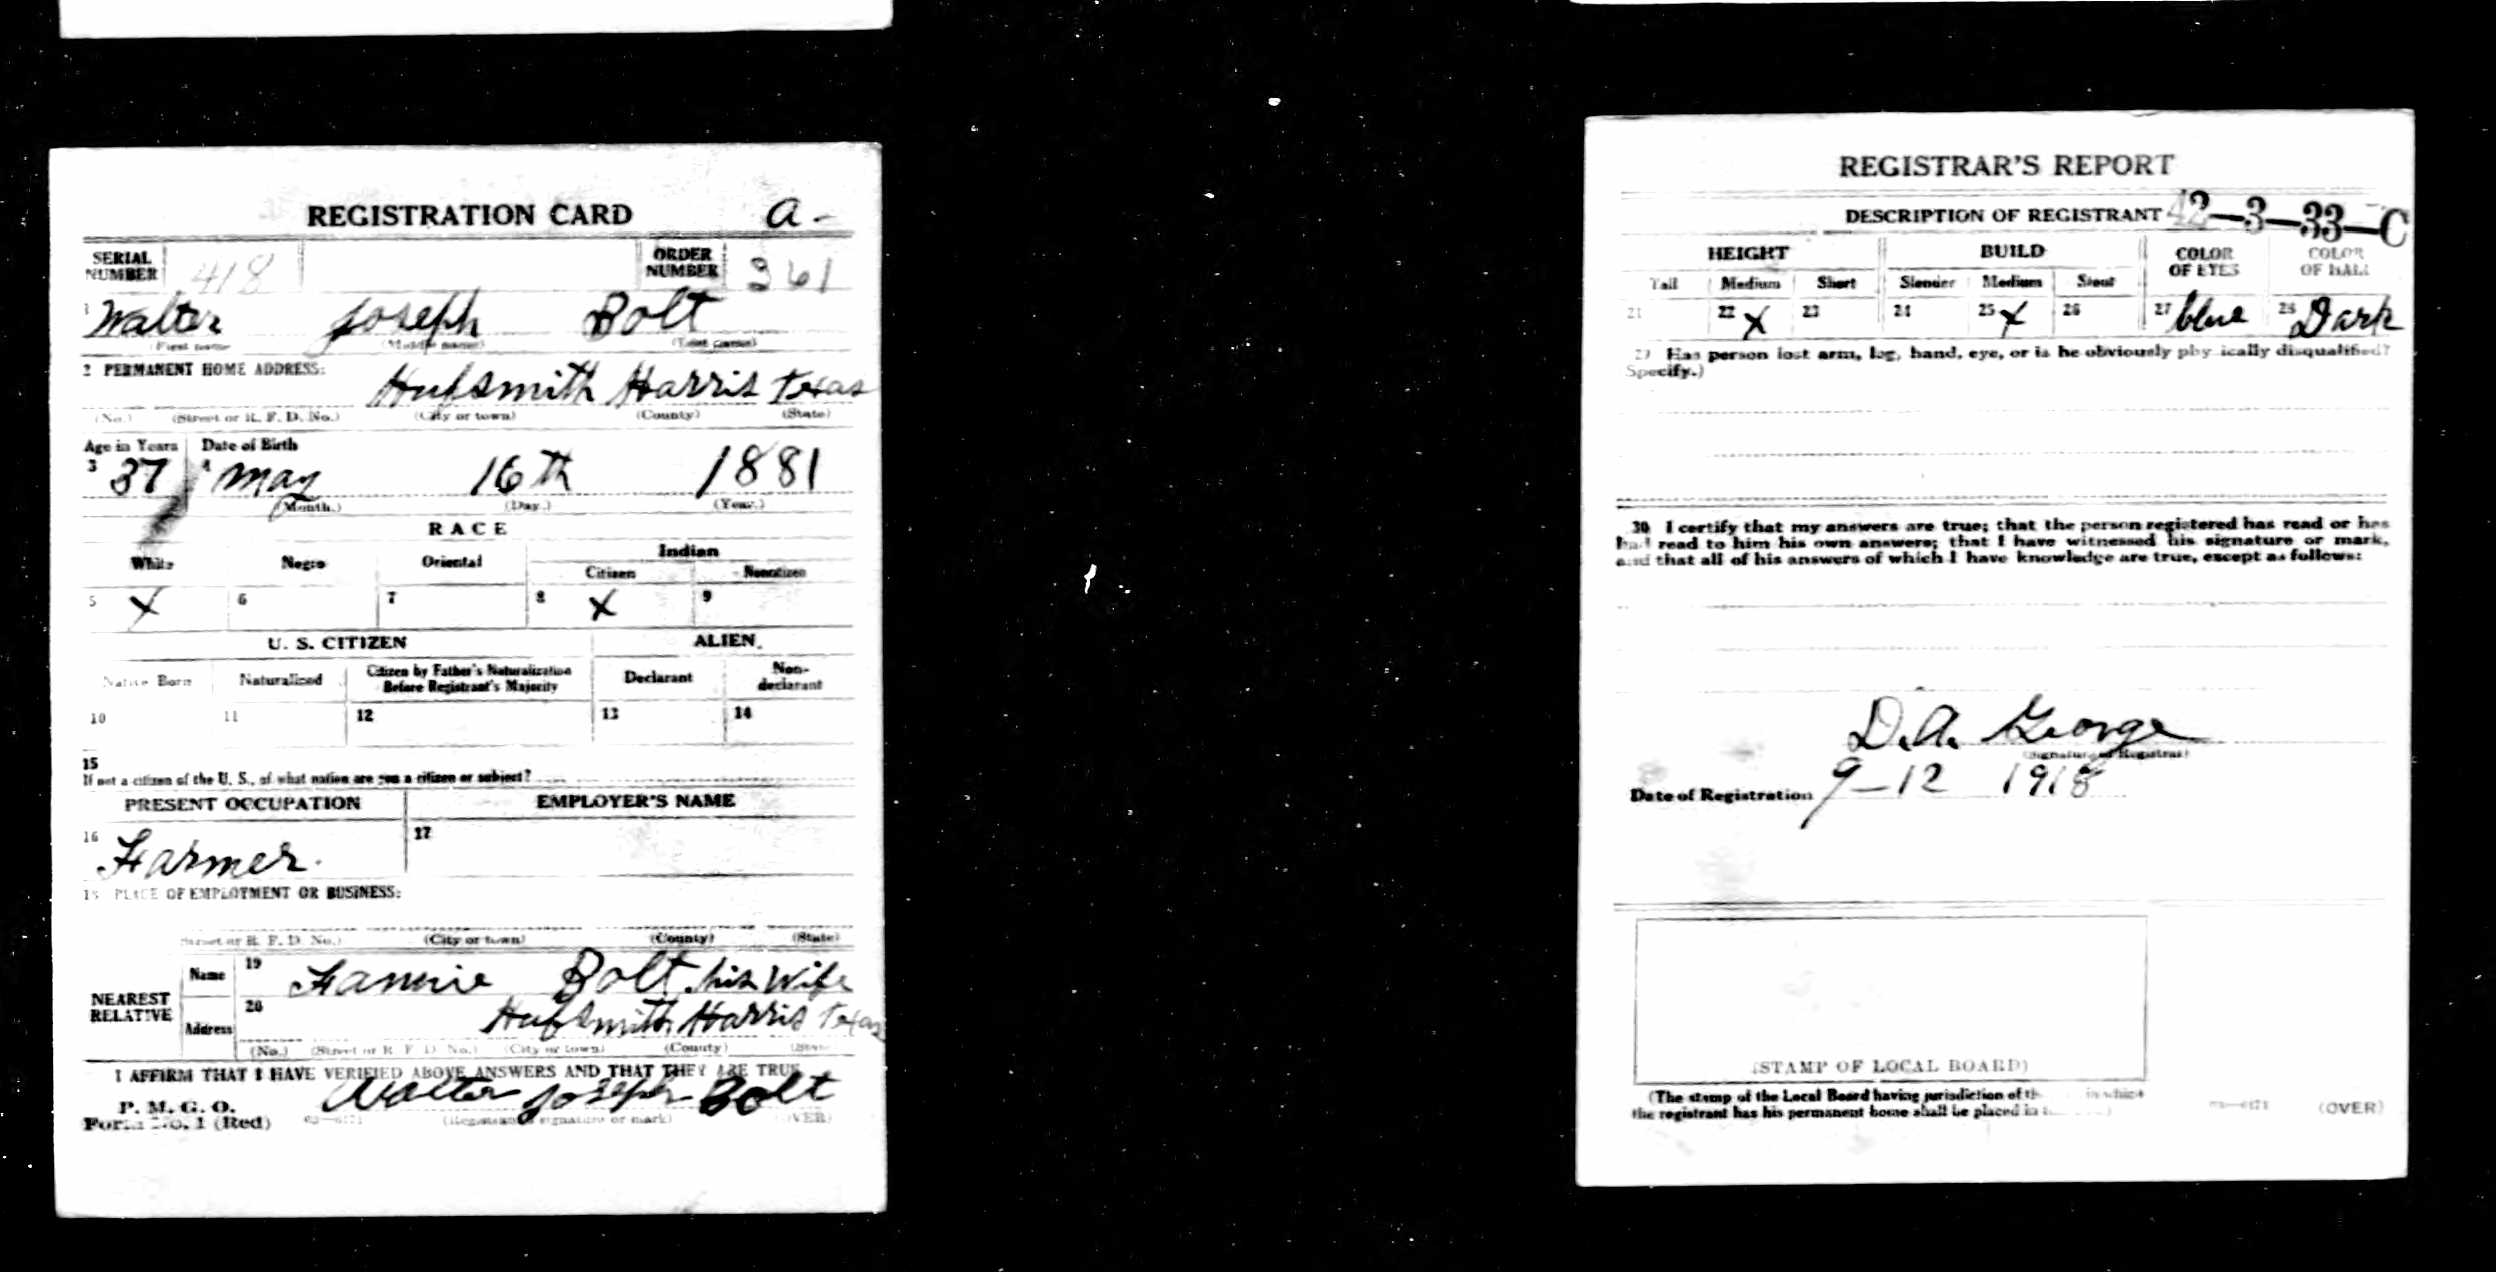 REGISTRATION CARD a-
SERIAL NUMBER 418 ORDER NUMBER 361
1 Walter Joseph Bolt
(First name) (Middle name) (Last name)
2 PERMANENT HOME ADDRESS:
Hufsmith Harris Texas
(No.) (Street or R. F. D. No.) (City or town) (County) (State)
Age in Years Date of Birth
3 37 4 May 16th 1881
(Month.) (Day.) (Year.)
RACE
White Negro Oriental Indian
Citizen Noncitizen
5 X 6 7 8 X 9
U. S. CITIZEN ALIEN
Native Born Naturalized Citizen by Father's Naturalization Before Registrant's Majority Declarant Non-declarant
10 11 12 13 14
15
If not a citizen of the U. S., of what nation are you a citizen or subject?
PRESENT OCCUPATION EMPLOYER'S NAME
16 Farmer. 17
18 PLACE OF EMPLOYMENT OR BUSINESS:
Street or R. F. D. No.) (City or town) (County) (State)
NEAREST RELATIVE
Name 19 Fannie Bolt his Wife
Address 20 Hufsmith Harris Texas
(No.) (Street or R. F. D. No.) (City or town) (County) (State
I AFFIRM THAT I HAVE VERIFIED ABOVE ANSWERS AND THAT THEY ARE TRUE
P. M. G. O.
Form No. 1 (Red) Walter Joseph Bolt
03—6171 (Registrant's signature or mark) (OVER)
REGISTRAR'S REPORT
42—3—33—C
DESCRIPTION OF REGISTRANT
HEIGHT BUILD COLOR OF EYES COLOR OF HAIR
Tall Medium Short Slender Medium Stout
21 22 X 23 24 25 X 26 27 blue 28 Dark
29 Has person lost arm, leg, hand, eye, or is he obviously physically disqualified?
Specify.)
30 I certify that my answers are true; that the person registered has read or has
had read to him his own answers; that I have witnessed his signature or mark,
and that all of his answers of which I have knowledge are true, except as follows:
D.A. George
(Signature of Registrar)
Date of Registration 9-12 1918
(STAMP OF LOCAL BOARD)
(The stamp of the Local Board having jurisdiction of the in which
the registrant has his permanent home shall be placed in
03—6171 (OVER)